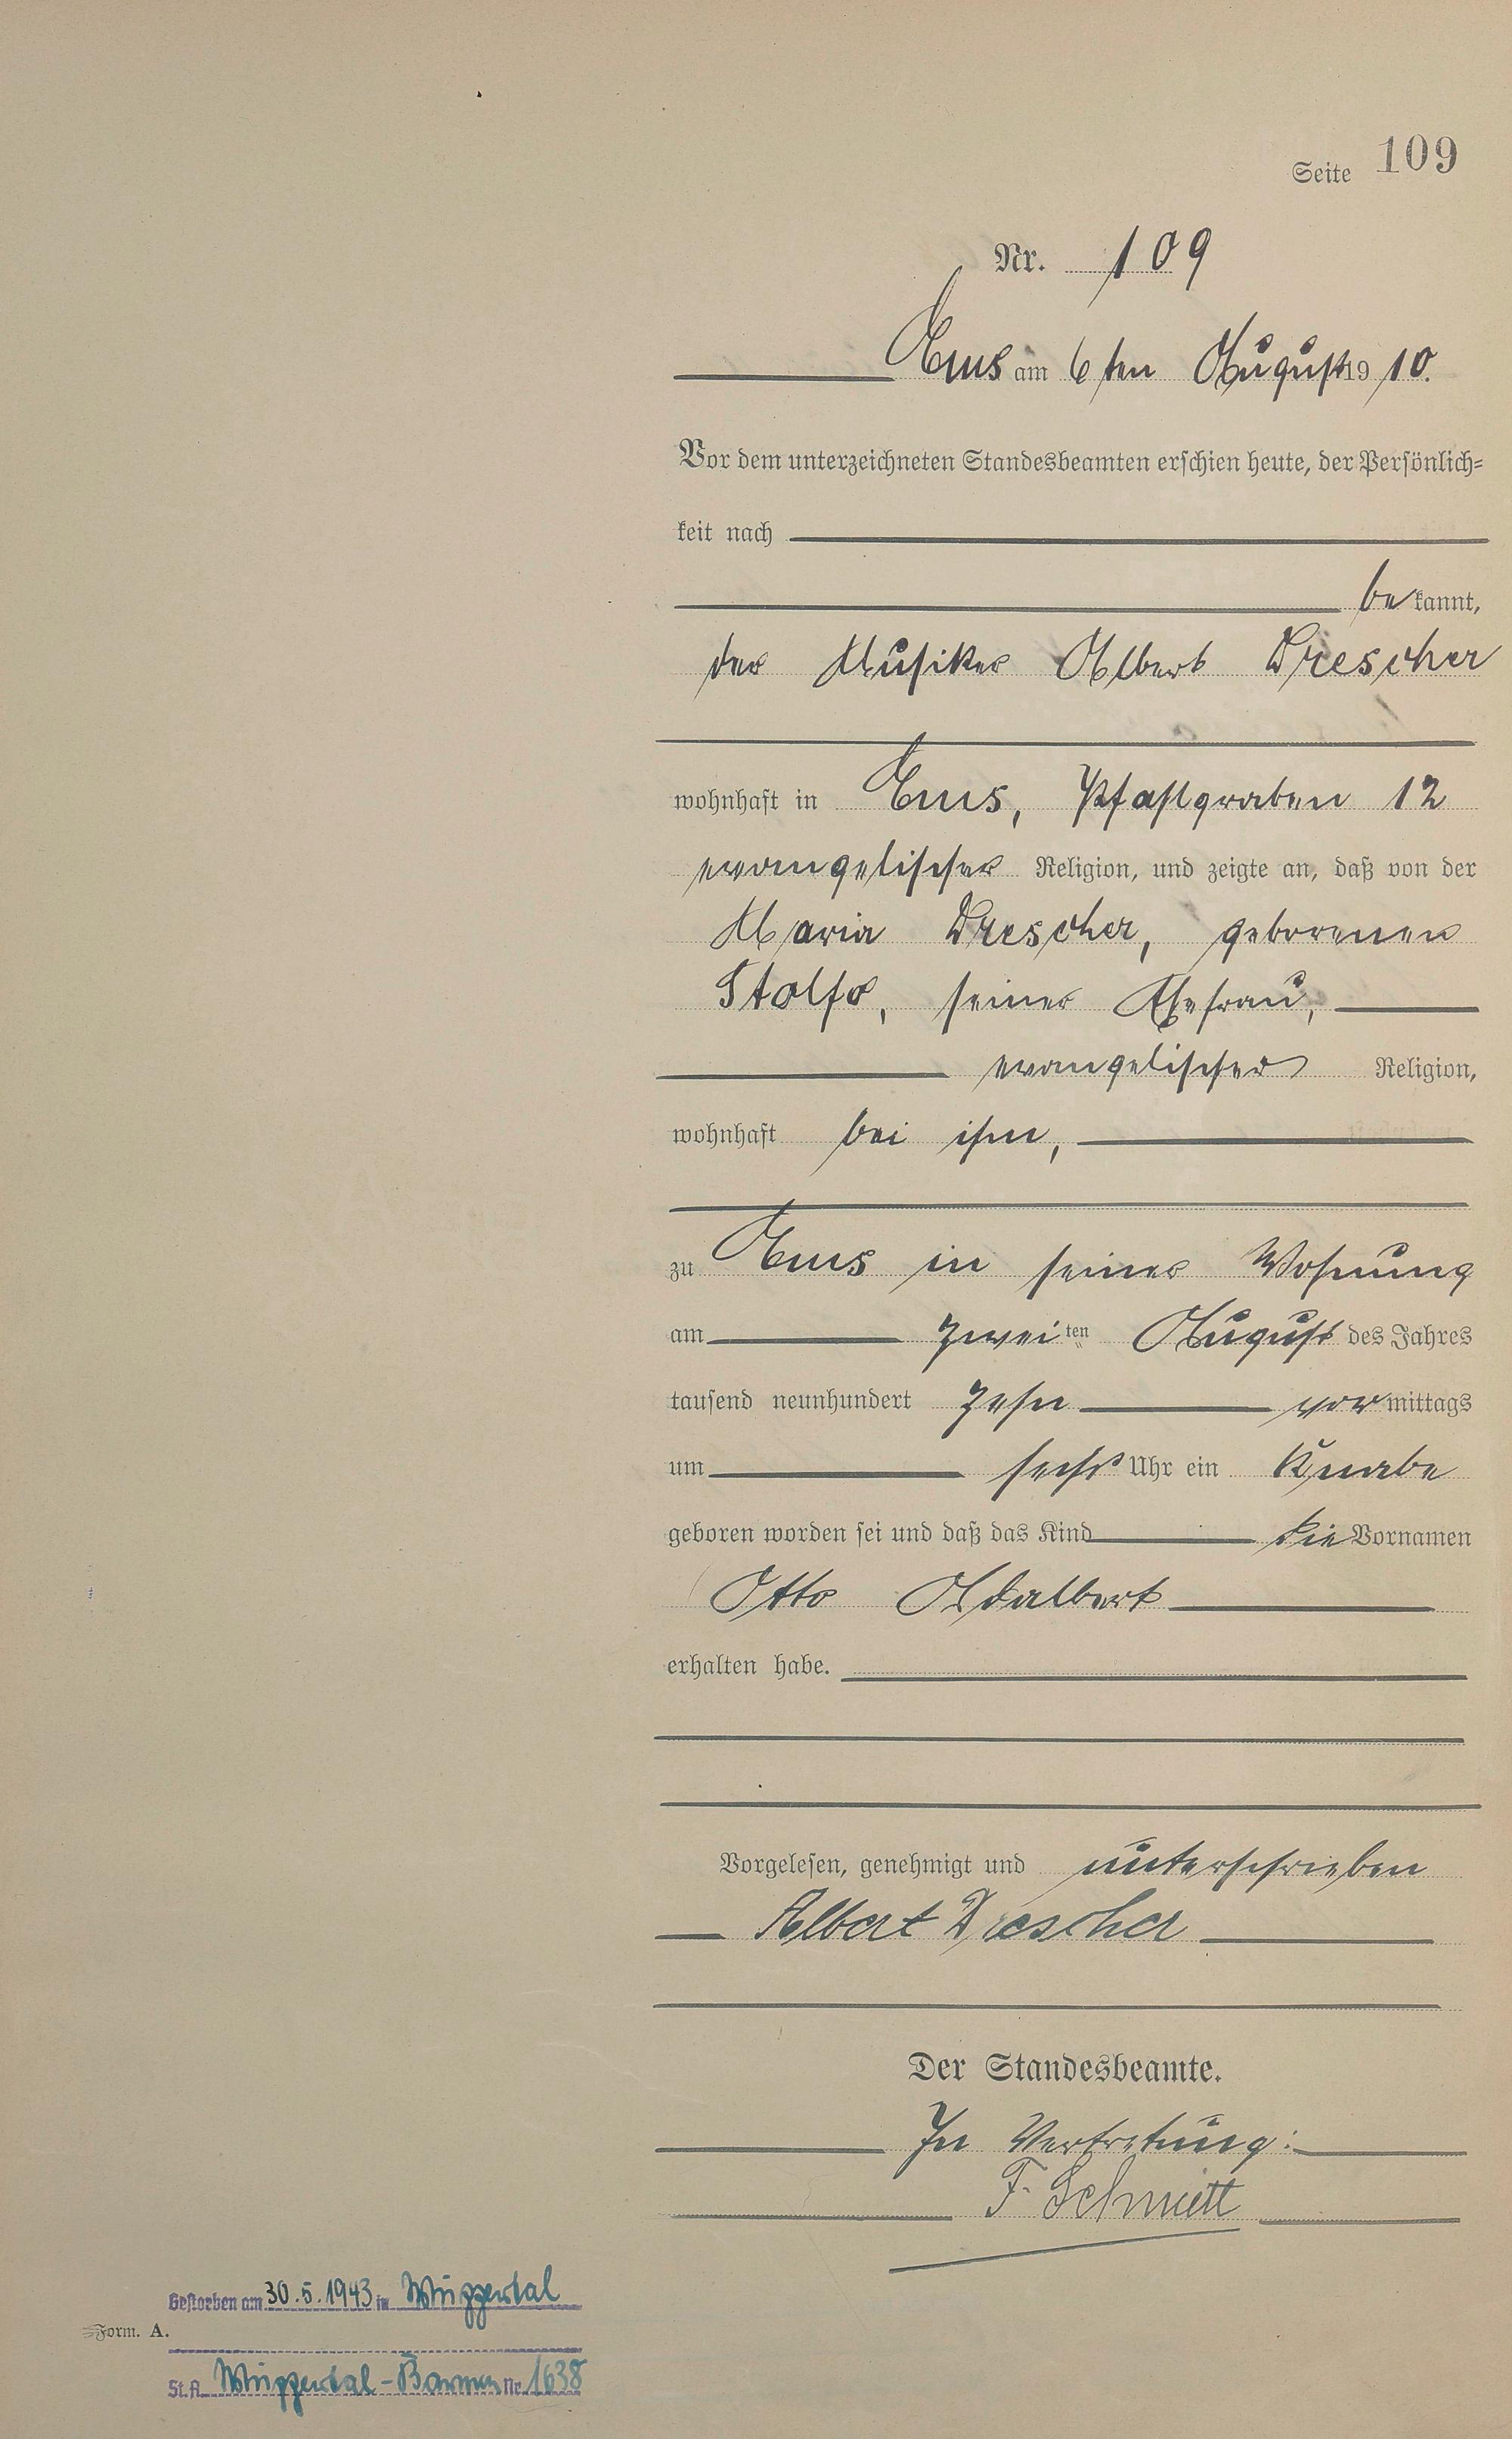 Seite 109
Nr. 109
Ems am 6ten August 1910.
Vor dem unterzeichneten Standesbeamten erschien heute, der Persönlich-
keit nach
bekannt,
der Musiker Albert Drescher
wohnhaft in Ems, Pfahlgraben 12
evangelischer Religion, und zeigte an, daß von der
Maria Drescher, geborenen
seiner Ehefrau,
evangelischer Religion,
wohnhaft bei ihm,
zu Ems in seiner Wohnung
am zweiten August des Jahres
tausend neunhundert zehn vormittags
um sechs Uhr ein Knabe
geboren worden sei und daß das Kind die Vornamen
Otto Adalbert
erhalten habe.
Vorgelesen, genehmigt und unterschrieben
Albert Drescher
Der Standesbeamte.
In Vertretung:
F. Schmitt
Gestorben am 30.5.1943 in Wuppertal
Form. A.
St.A. Wuppertal-Barmen Nr. 1638